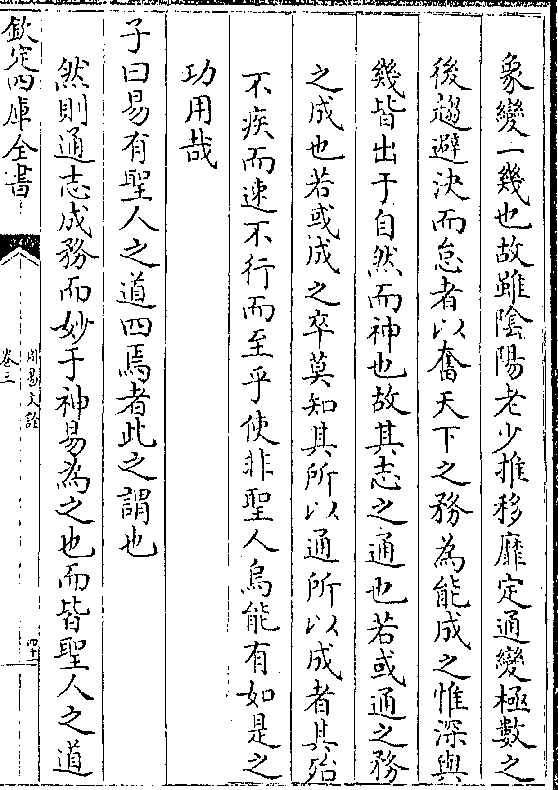 象變一幾也故雖陰陽老少推移靡定通變極數之
後趨避決而怠者以奮天下之務為能成之惟深與
幾皆出于自然而神也故其志之通也若或通之務
之成也若或成之卒莫知其所以通所以成者其殆
不疾而速不行而至乎使非聖人烏能有如是之
功用哉
子曰易有聖人之道四焉者此之謂也
然則通志成務而妙于神易為之也而皆聖人之道
欽定四庫全書
周易文詮
卷三